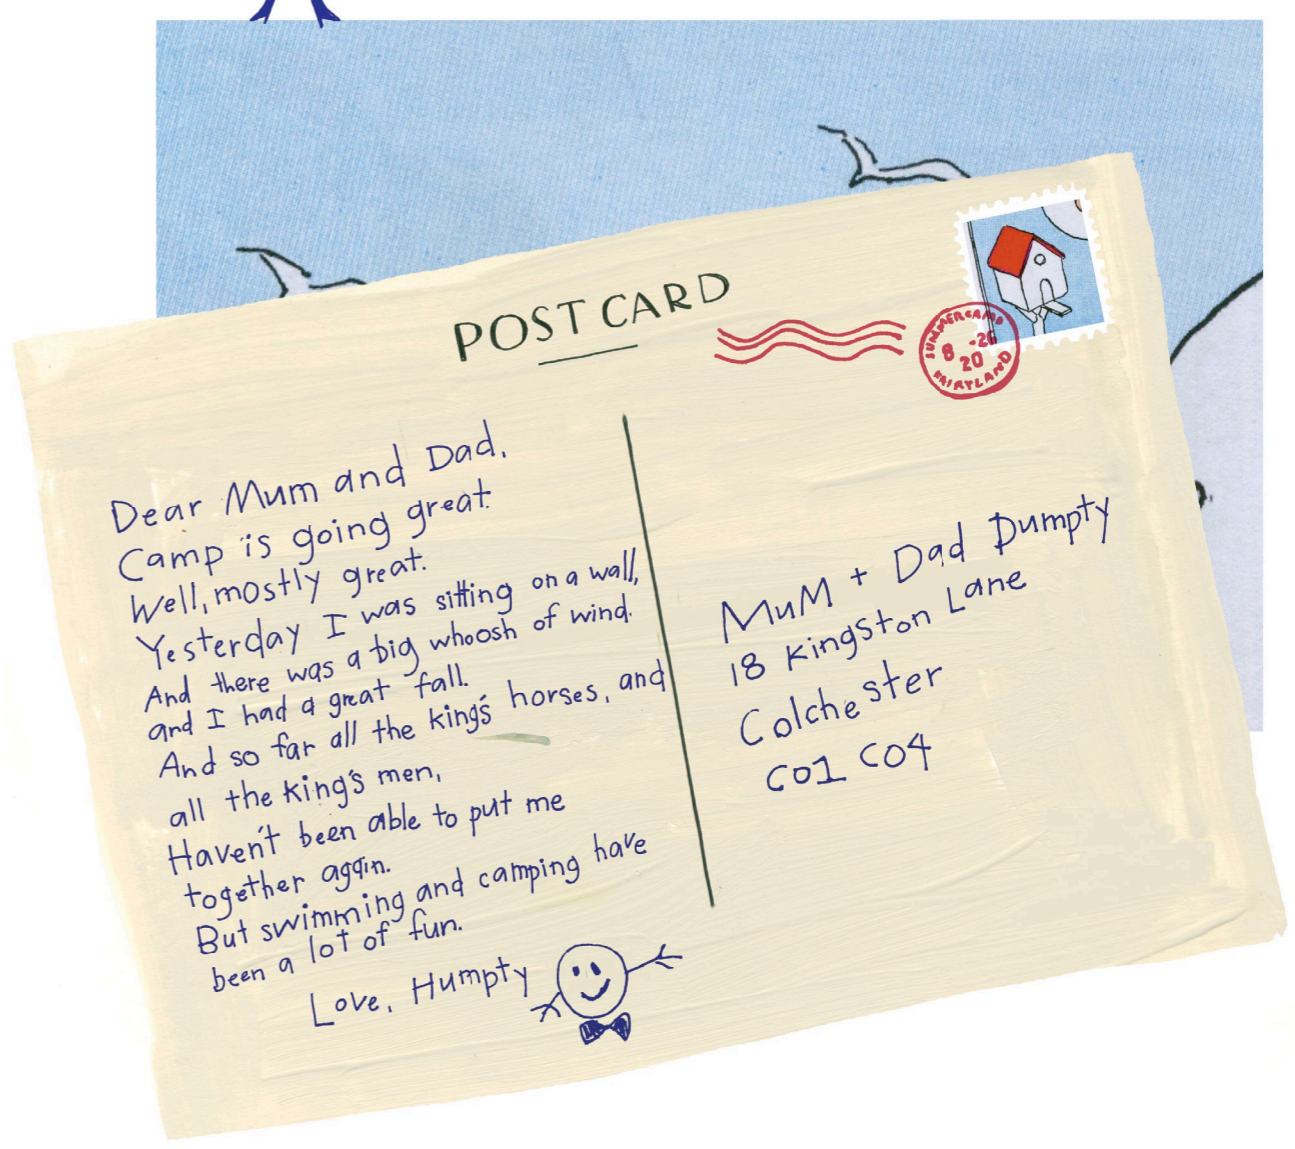 POST CARD
SUMMERCAMP
8 -26
20
FAIRYLAND
Dear Mum and Dad,
Camp is going great.
Well, mostly great.
Yesterday I was sitting on a wall,
And there was a big whoosh of wind.
and I had a great fall.
And so far all the king's horses, and
all the king's men,
Haven't been able to put me
together again.
But swimming and camping have
been a lot of fun.
Love, Humpty
MuM + Dad Dumpty
18 Kingston Lane
Colchester
CO1 CO4